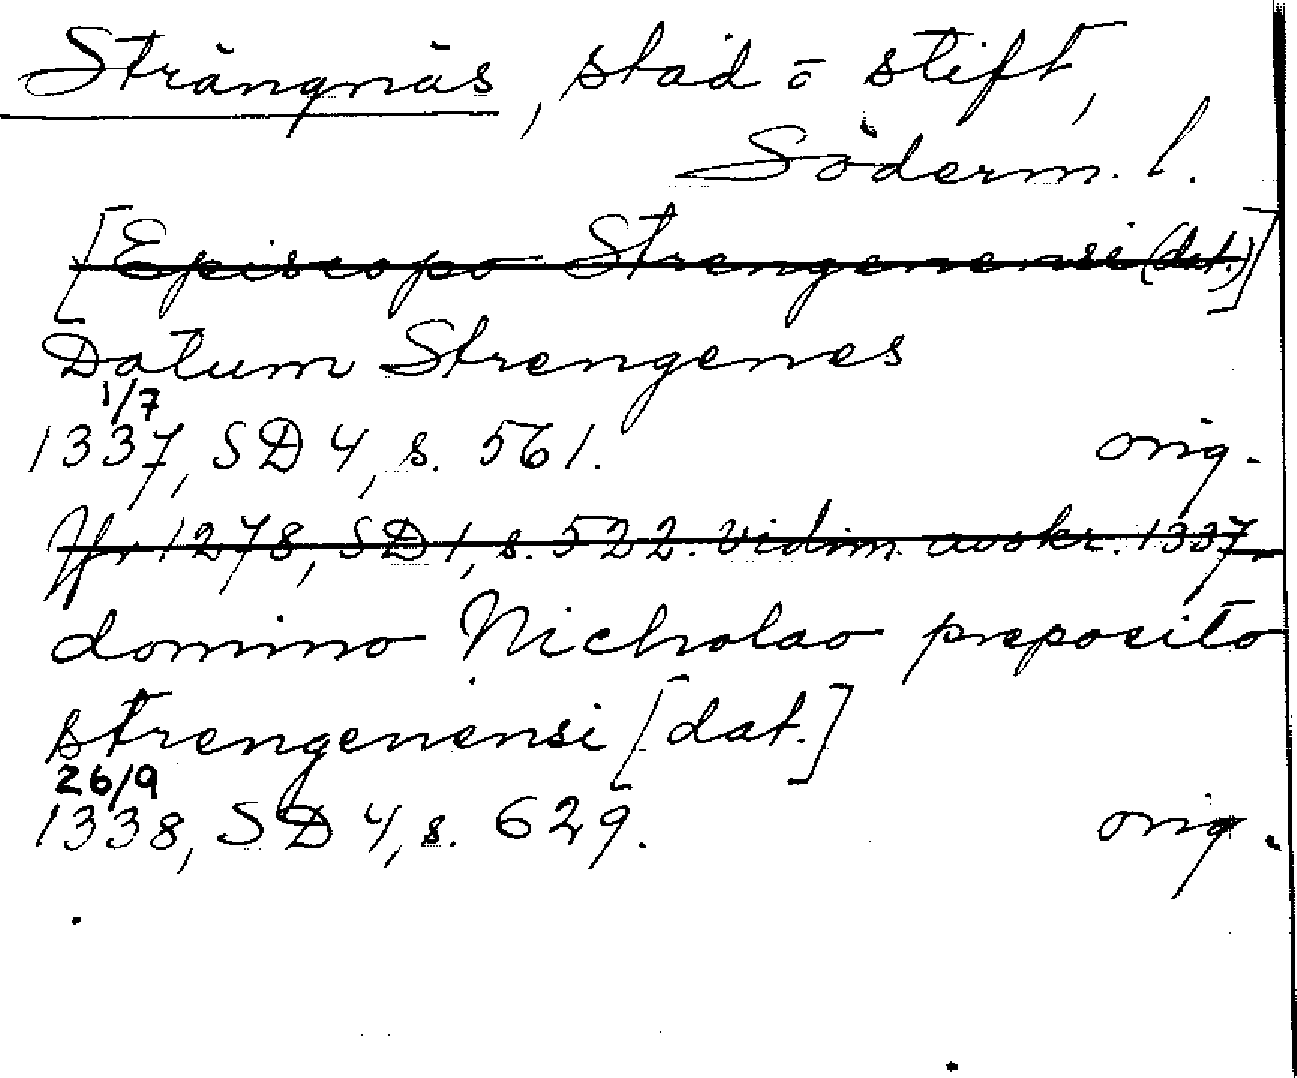 Strängnäs, stad o stift,
Söderm. l.
[Episcopo Strengenensi (dat.)]
Datum Strengenes
1/7
1337, SD 4, s. 561. orig.
Jfr 1278, SD 1, s. 522. vidim. avskr. 1337.
domino Nicholao preposito
strengenensi [dat.]
26/9
1338, SD 4, s. 629. orig.